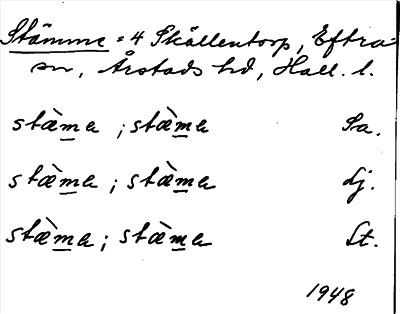 Stämme = 4 Skällentorp, Eftra-
sn, Årstads hd, Hall. l.
stæ̀me ; stæ̀me Sa.
stæ̀me ; stæ̀me Lj.
stæ̀me ; stæ̀me St.
1948